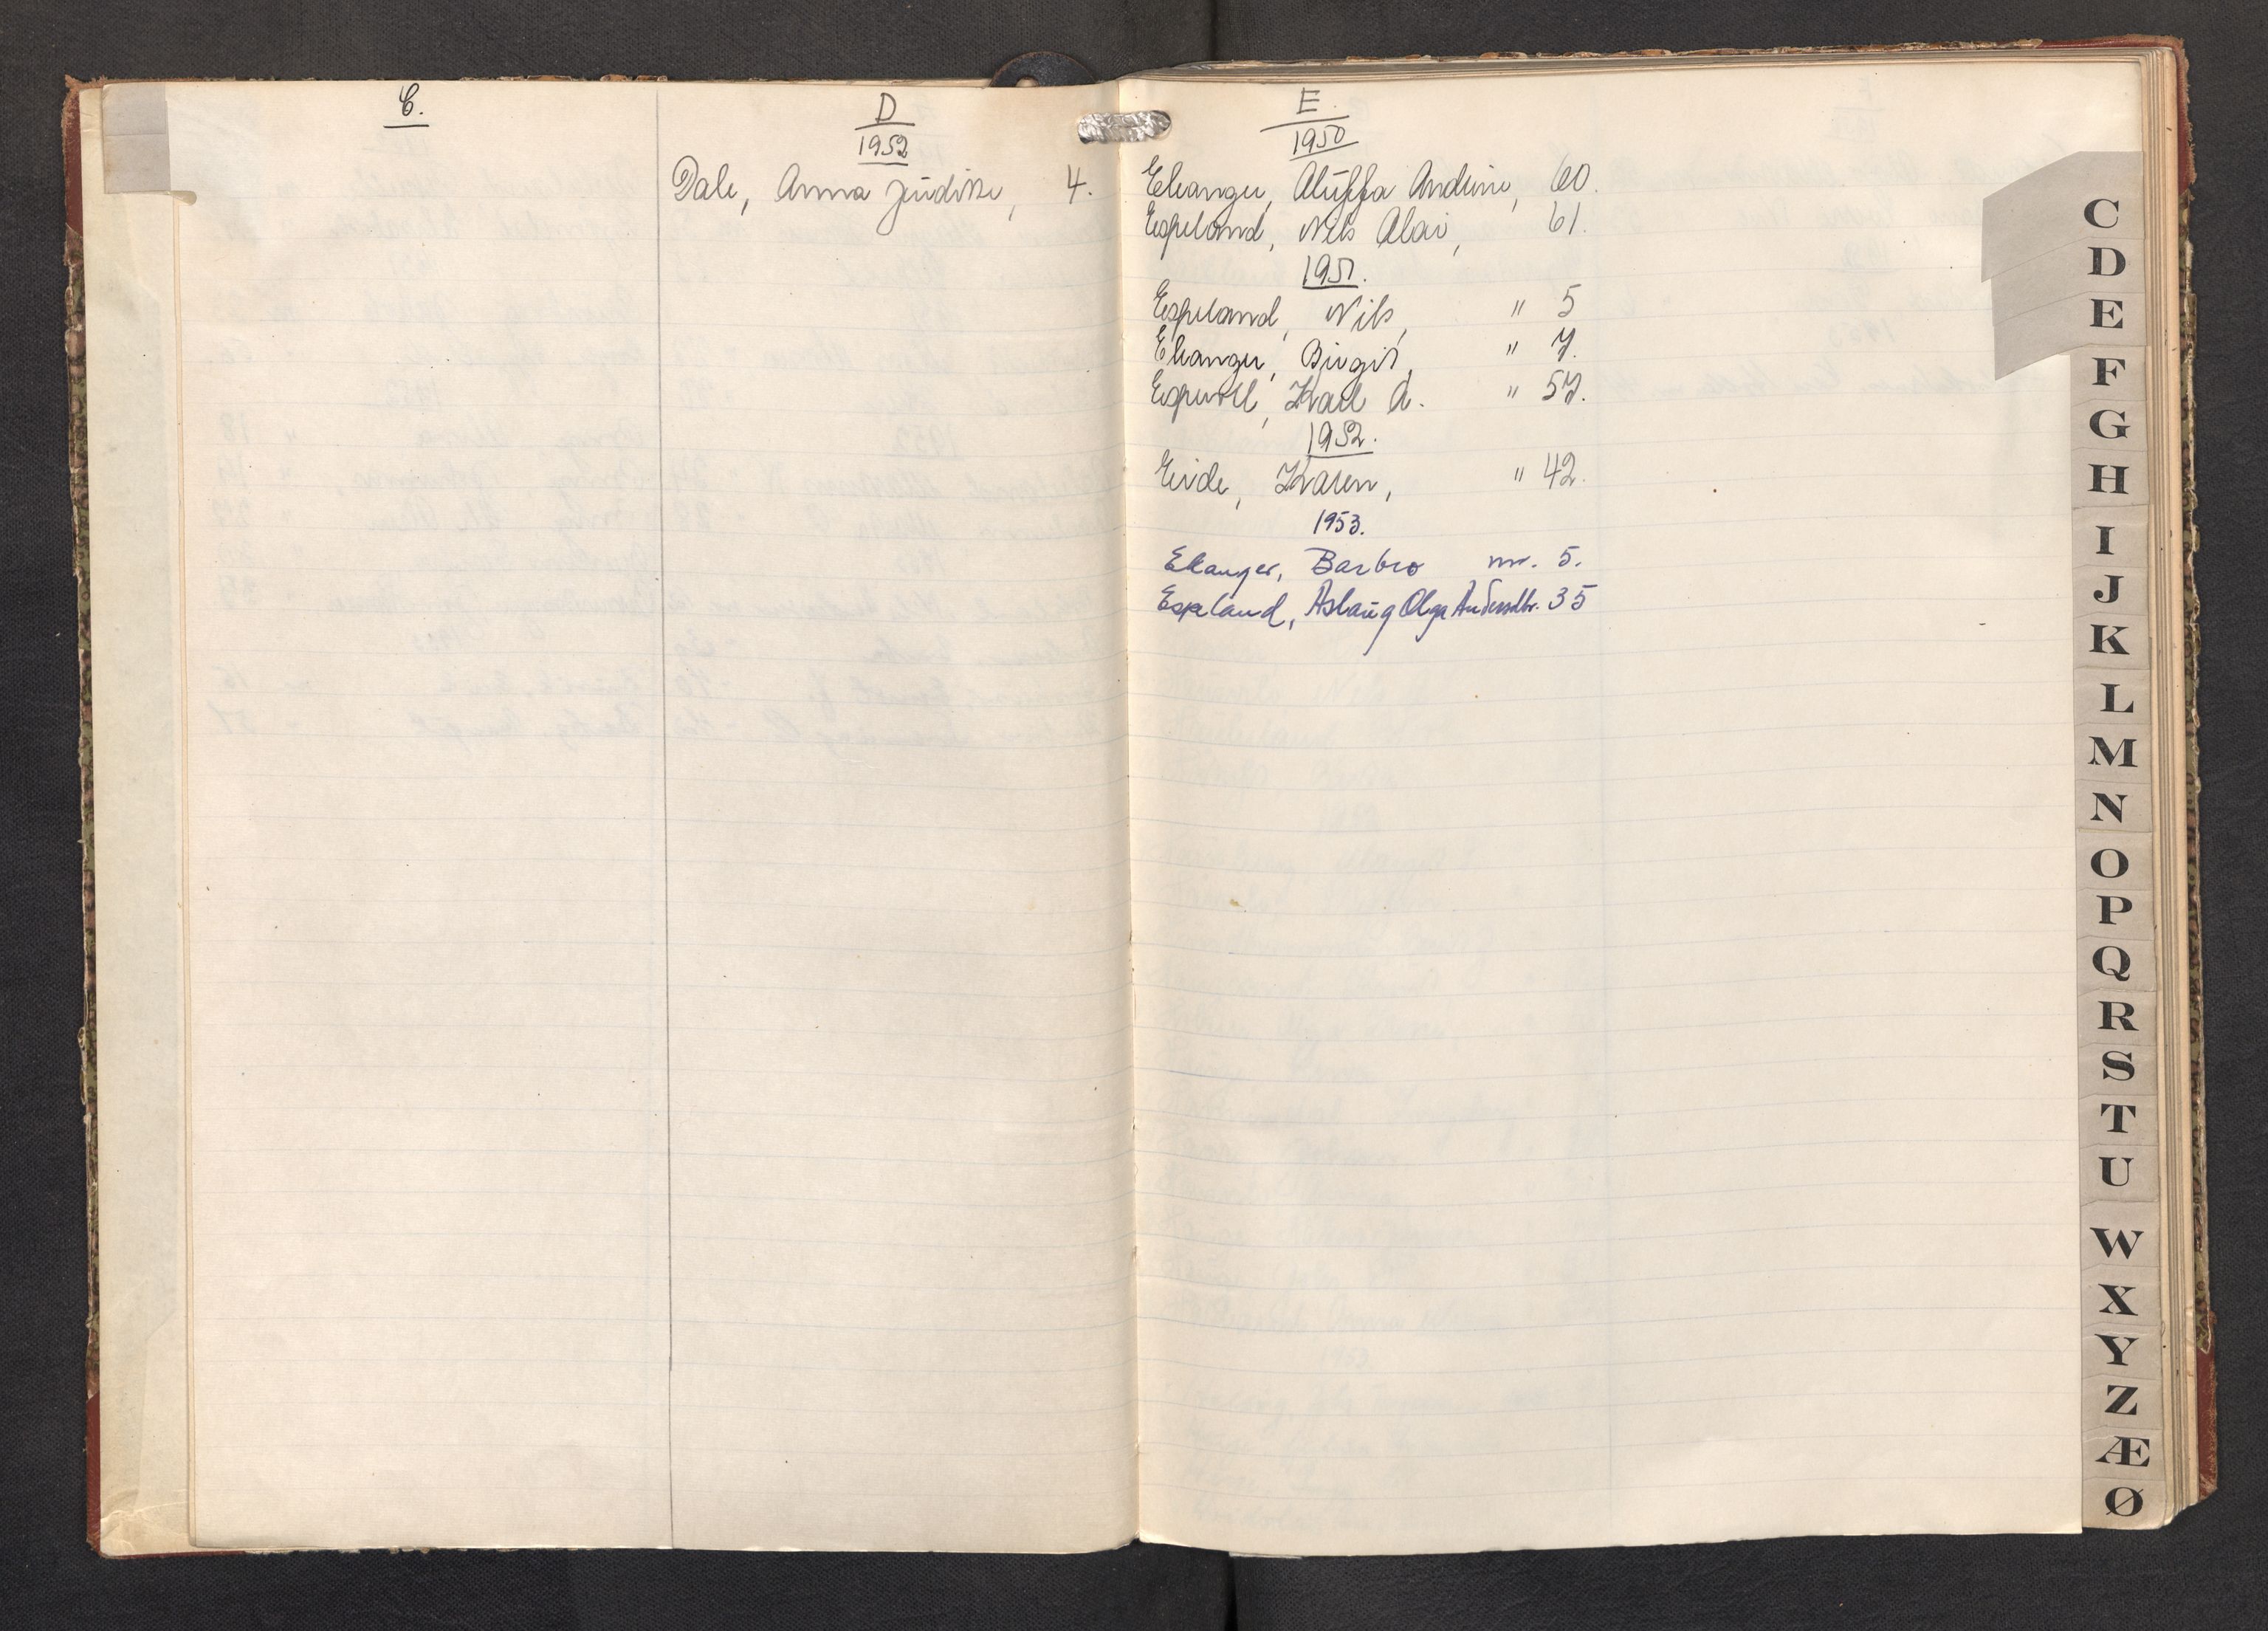 C.
D
1952
Dale, Anna Juditte, 4.
E.
1950
Ekanger, Aluffa Andrine, 60.
Espeland, Nils Olai, 61.
1951.
Espeland, Nils, " 5
Ekanger, Birgit, " 7.
Espevoll, Karl A. " 57.
1952.
Eide, Karen, " 42.
1953.
Ekanger, Barbro nr. 5.
Espeland, Aslaug Olga Andersdtr. 35
C
D
E
F
G
H
I
J
K
L
M
N
O
P
Q
R
S
T
U
W
X
Y
Z
Æ
Ø